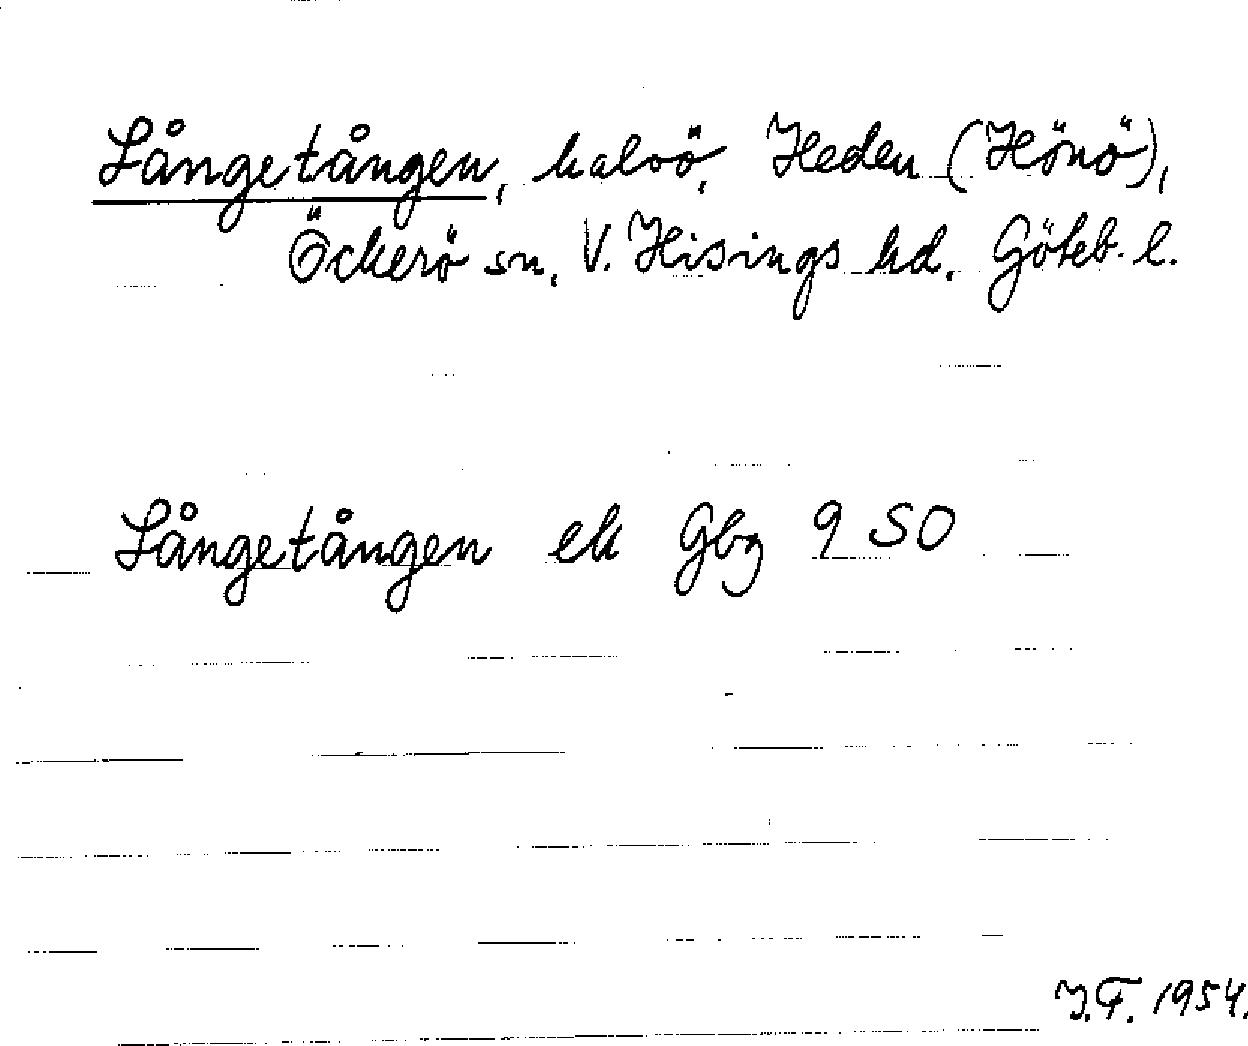 Långetången, halvö, Heden (Hönö),
Öckerö sn, V. Hisings hd. Göteb. l.
Långetången ek Gbg 9 SO
J.F. 1954.